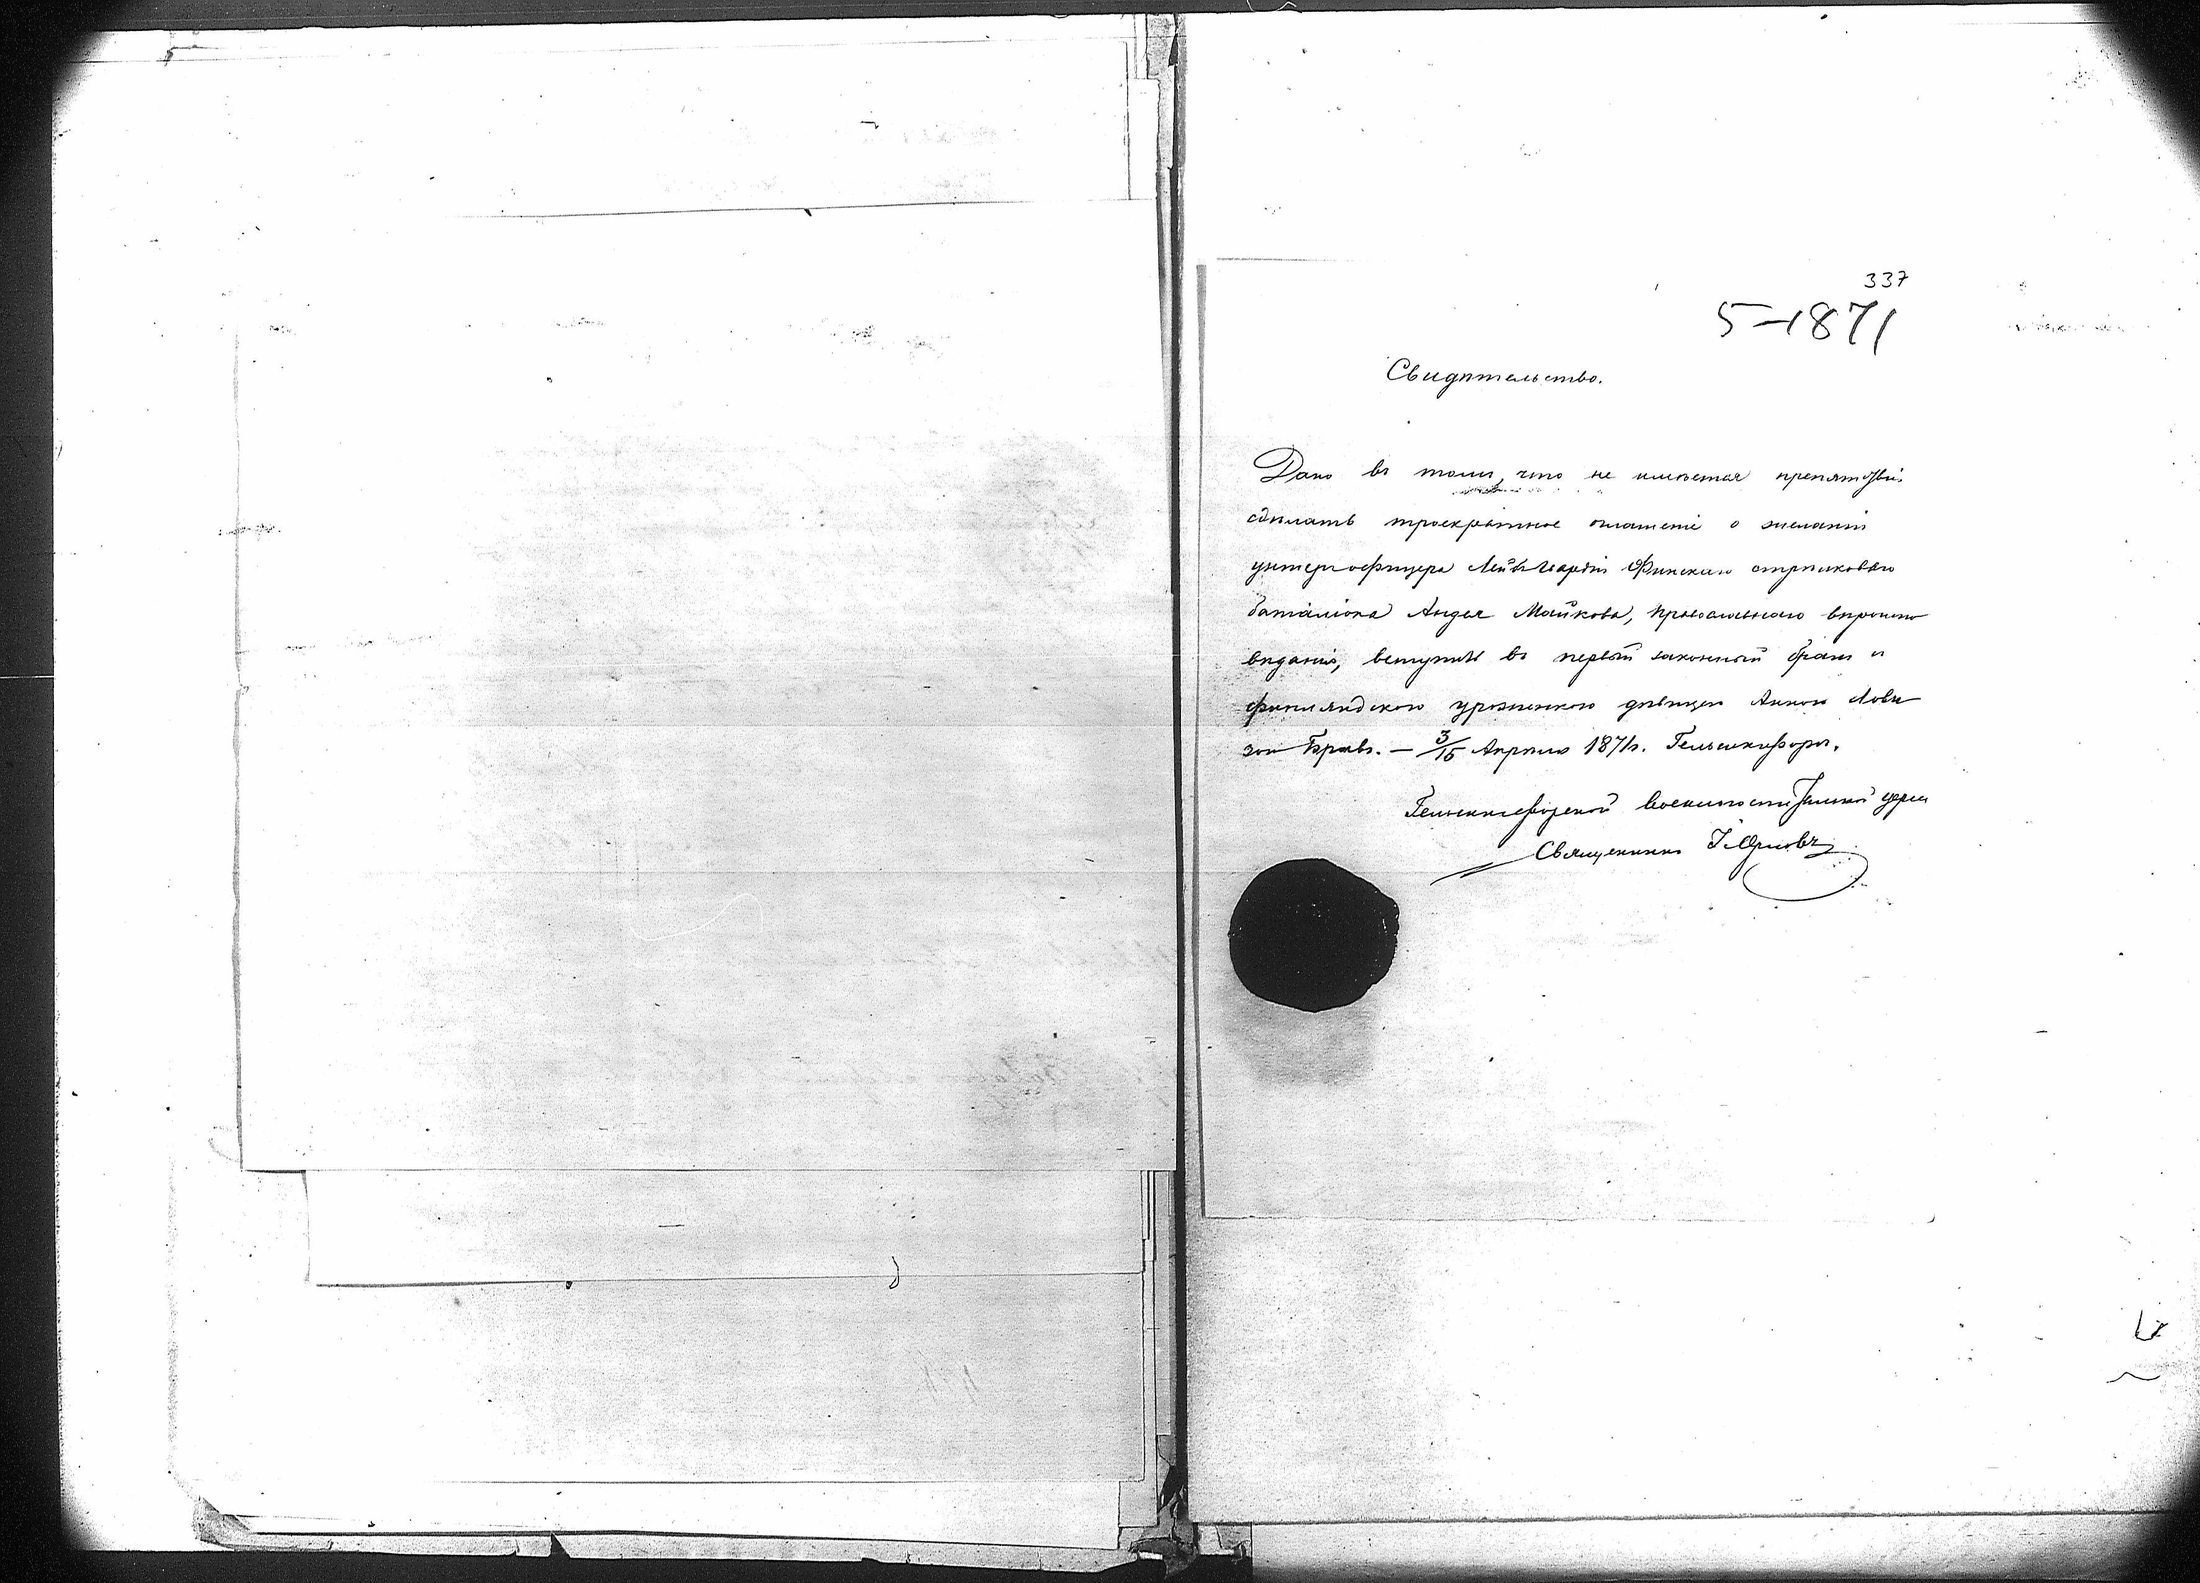 337
5-1871
Свидѣтельство.
Дано въ томъ, что не имѣется препятствій
сдѣлать троекратное оглашеніе о желаніи
унтеръ-офицера Лейбъ Гвардіи Финскаго стрѣлковаго
баталіона Андрея Майкова, православнаго вѣроиспо
вѣданія, вступить въ первый законный бракъ съ
финляндскою уроженкою дѣвицею Анною Лови
зою Бравъ. — 3/15 Апрѣля 1871 г. Гельсингфорсъ.
Гельсингфорской военногоспитальной церкви
Священникъ І. Орловъ